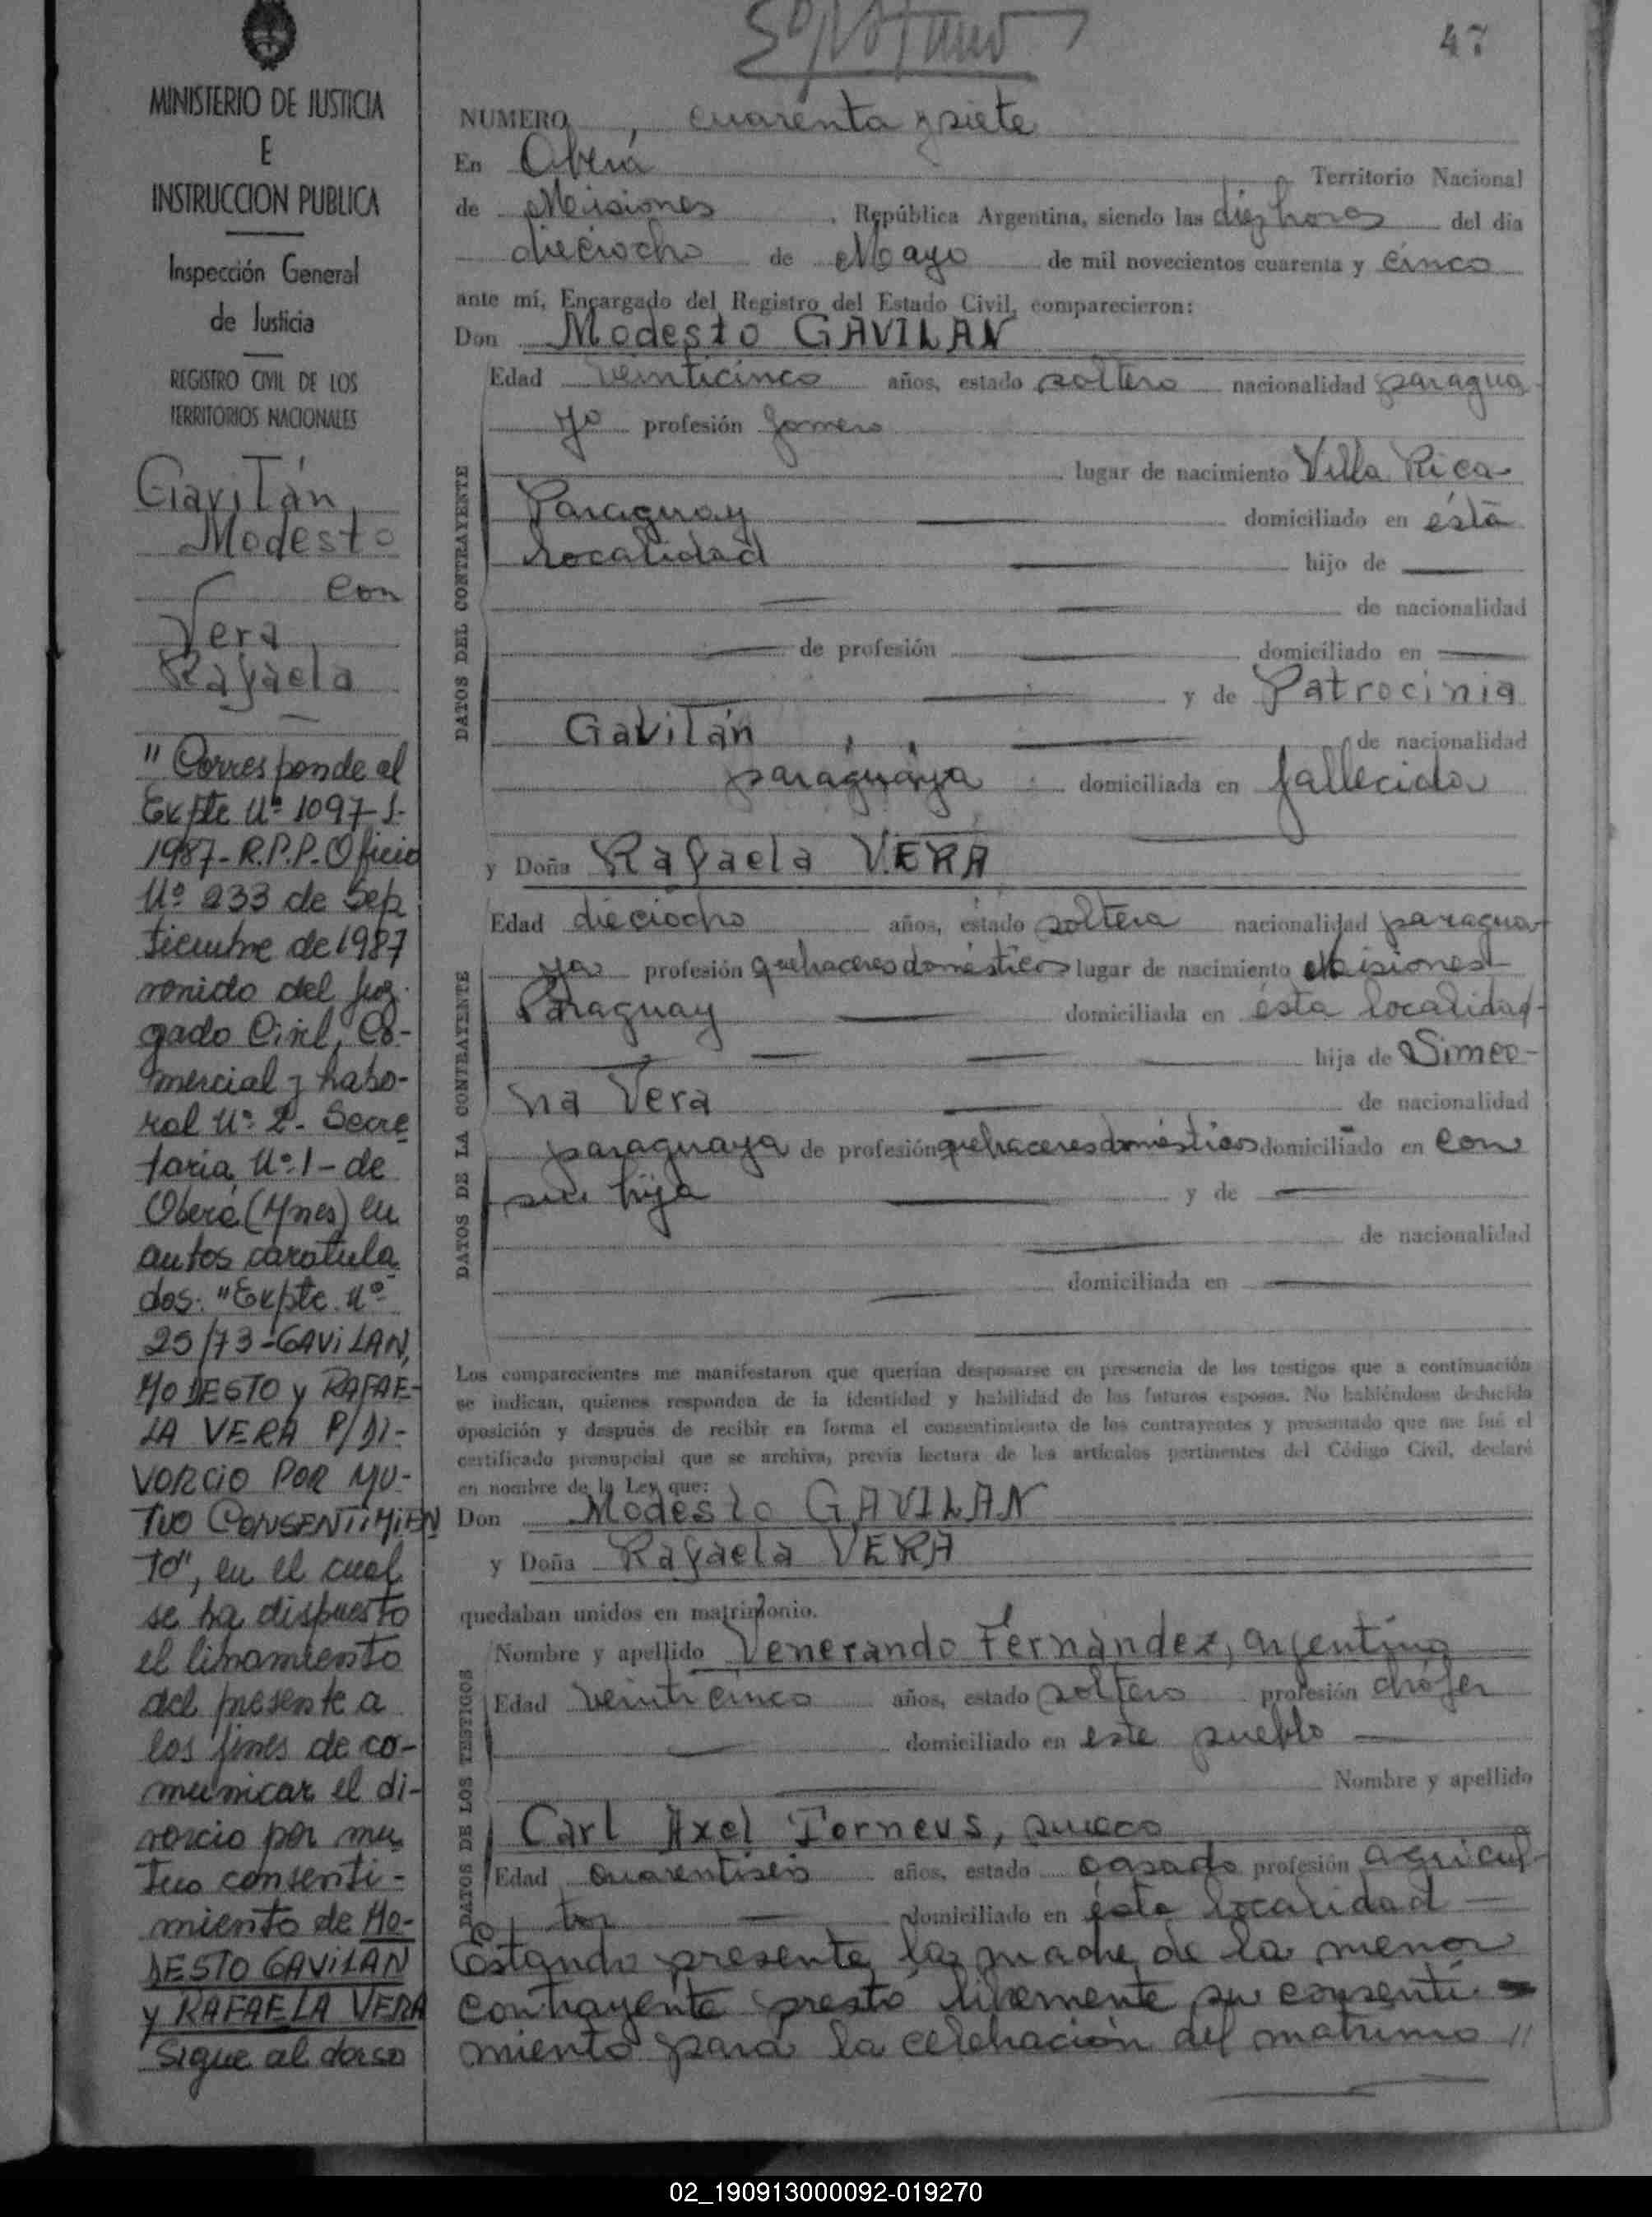 47
MINISTERIO DE JUSTICIA
E
INSTRUCCION PUBLICA
Inspección General
de Justicia
REGISTRO CIVIL DE LOS
TERRITORIOS NACIONALES
Gavilán,
Modesto
con
Vera
Rafaela
"Corresponde al
Expte Nº 1097-J-
1987-R.P.P.-Oficio
Nº 233 de Sep
tiembre de 1987
venido del Juz-
gado Civil, Co-
mercial y Labo-
ral Nº 2- Secre
taria Nº 1- de
Oberá (Mnes) en
autos caratula
dos: "Expte. Nº
25/73-GAVILAN,
MODESTO y RAFAE-
LA VERA P/DI-
VORCIO POR MU-
TUO CONSENTIMIEN
TO", en el cual
se ha dispuesto
el libramiento
del presente a
los fines de co-
municar el di-
vorcio por mu
tuo consenti-
miento de MO-
DESTO GAVILAN
y RAFAELA VERA
Sigue al dorso
NUMERO, cuarenta y siete
En Oberá Territorio Nacional
de Misiones, República Argentina, siendo las diez horas del día
dieciocho de Mayo de mil novecientos cuarenta y cinco
ante mí, Encargado del Registro del Estado Civil, comparecieron:
Don Modesto GAVILAN
DATOS DEL CONTRAYENTE
Edad veinticinco años, estado soltero nacionalidad paragua-
yo profesión
lugar de nacimiento Villa Rica
Paraguay domiciliado en ésta
Localidad hijo de
de nacionalidad
de profesión domiciliado en
y de Patrocinia
Gavilán, de nacionalidad
paraguaya domiciliada en fallecida
y Doña Rafaela VERA
DATOS DE LA CONTRAYENTE
Edad dieciocho años, estado soltera nacionalidad paragua-
ya profesión quehaceres domésticos lugar de nacimiento Misiones
Paraguay domiciliada en ésta localidad-
hija de Simeo-
na Vera de nacionalidad
paraguaya de profesión quehaceres domésticos domiciliado en con
su hija y de
de nacionalidad
domiciliada en
Los comparecientes me manifestaron que querían desposarse en presencia de los testigos que a continuación
se indican, quienes responden de la identidad y habilidad de los futuros esposos. No habiéndose deducido
oposición y después de recibir en forma el consentimiento de los contrayentes y presentado que me fué el
certificado prenupcial que se archiva, previa lectura de los artículos pertinentes del Código Civil, declaré
en nombre de la Ley que:
Don Modesto GAVILAN
y Doña Rafaela VERA
quedaban unidos en matrimonio.
DATOS DE LOS TESTIGOS
Nombre y apellido Venerando Fernández, argentino
Edad veinticinco años, estado soltero profesión chófer
domiciliado en este pueblo
Nombre y apellido
Carl Axel Torneus, sueco
Edad cuarentiseis años, estado casado profesión agricul-
tor domiciliado en ésta localidad
Estando presente la madre de la menor
contrayente prestó libremente su consenti-
miento para la celebración del matrimo //
02_190913000092-019270